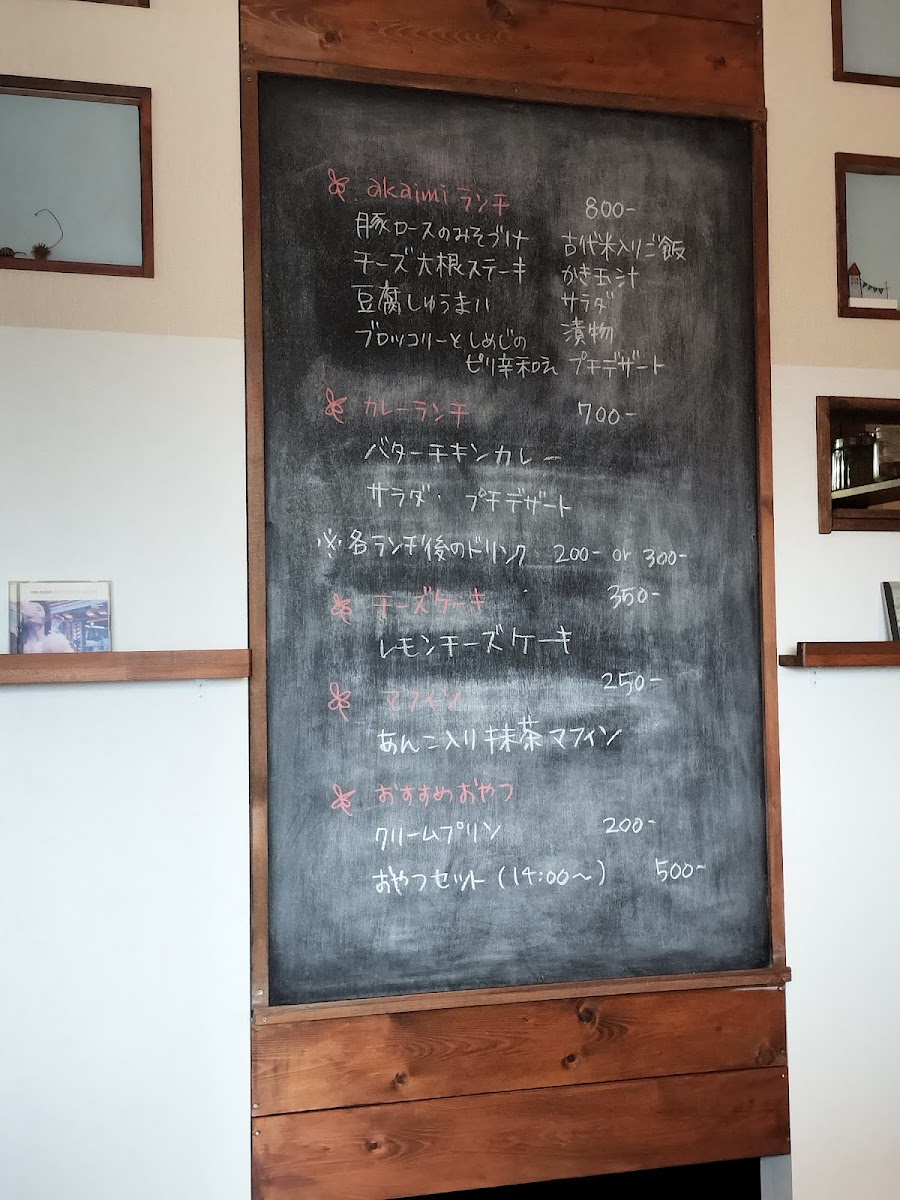 akaimi ランチ 800-
豚ロースのみそづけ 古代米入りご飯
チーズ大根ステーキ かき玉汁
豆腐しゅうまい サラダ
ブロッコリーとしめじの 漬物
ピリ辛和え プチデザート
カレーランチ 700-
バターチキンカレー
サラダ・プチデザート
※各ランチ後のドリンク 200- or 300-
チーズケーキ 350-
レモンチーズケーキ
マフィン 250-
あんこ入り抹茶マフィン
おすすめおやつ
クリームプリン 200-
おやつセット(14:00〜) 500-